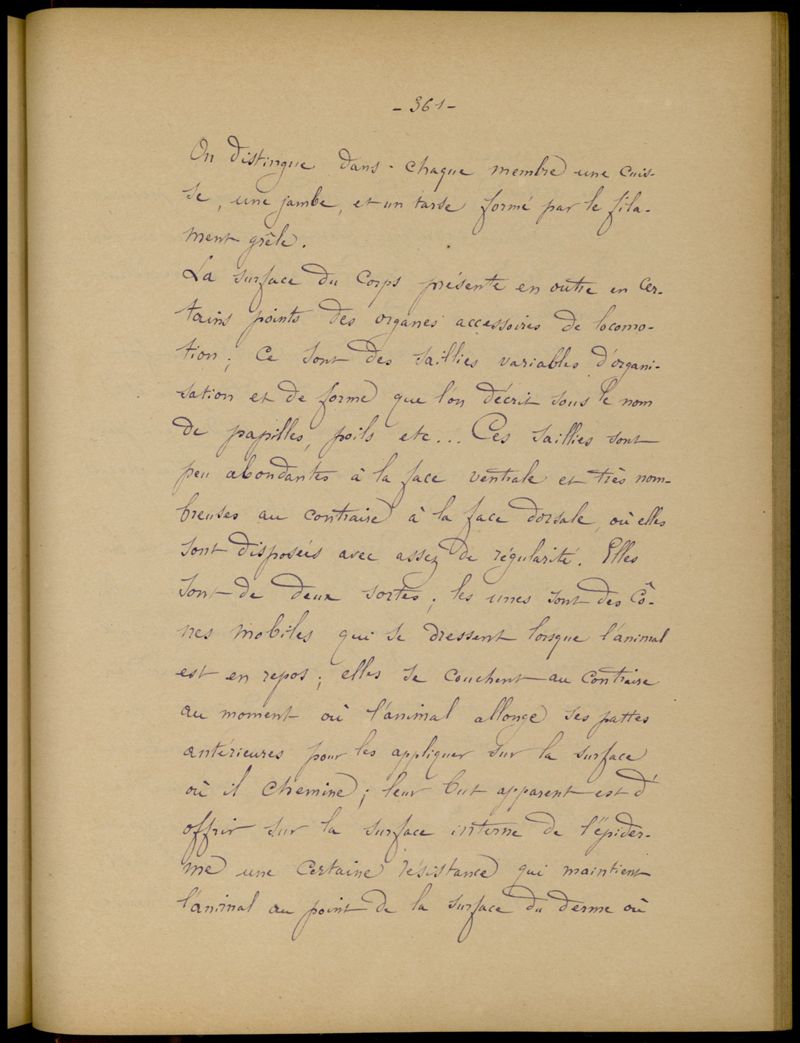 - 361 -
On distingue dans chaque membre une cuis-
se, une jambe, et un tarse formé par le fila-
ment grêle.
La surface du corps présente en outre en cer-
tains points des organes accessoires de locomo-
tion; ce sont des saillies variables d'organi-
sation et de forme que l'on décrit sous le nom
de papilles, poils etc... Ces saillies sont
peu abondantes à la face ventrale et très nom-
breuses au contraire à la face dorsale, où elles
sont disposées avec assez de régularité. Elles
sont de deux sortes; les unes sont des cô-
nes mobiles qui se dressent lorsque l'animal
est en repos; elles se couchent au contraire
au moment où l'animal allonge ses pattes
antérieures pour les appliquer sur la surface
où il chemine; leur but apparent est d'
offrir sur la surface interne de l'épider-
me une certaine résistance qui maintient
l'animal au point de la surface du derme où